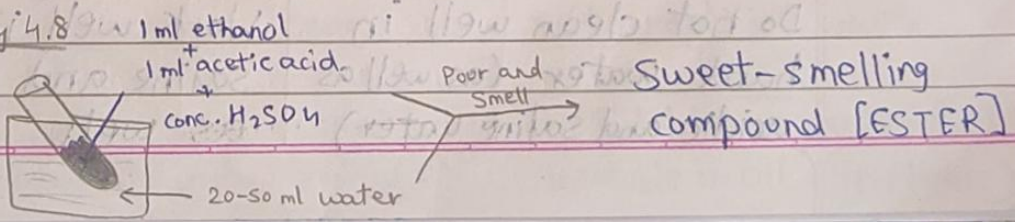 4.8 1ml ethanol
+
1ml acetic acid.
+
conc. H₂SO4
20-50 ml water
Poor and
smell
Sweet-smelling
compound [ESTER]